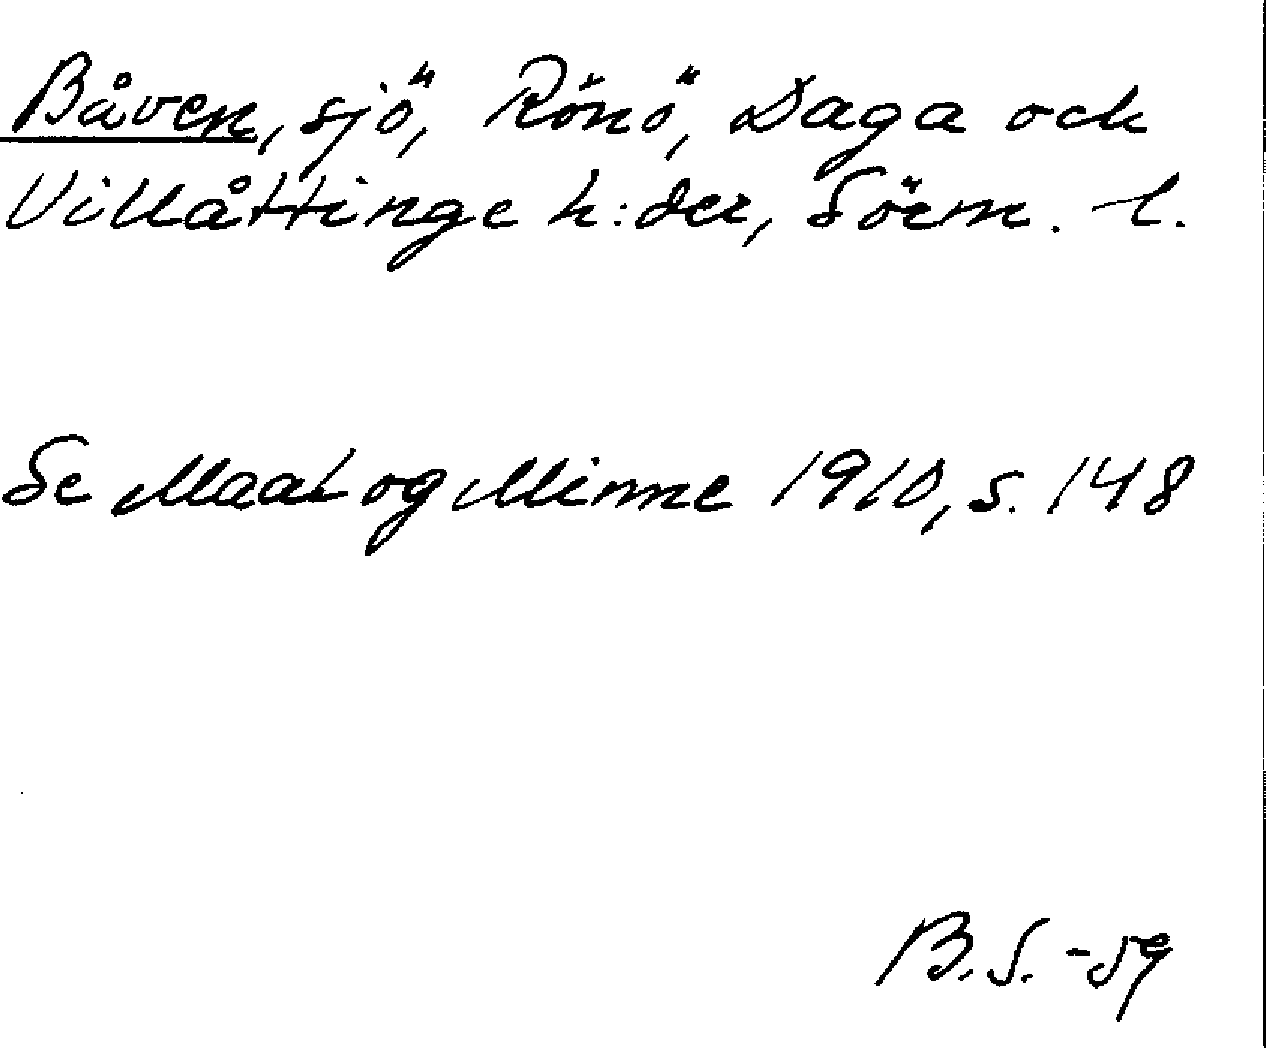 Båven, sjö, Rönö, Daga och
Villåttinge h:der, Sörm. l.
Se Maal og Minne 1910, s. 148
B.S. -59